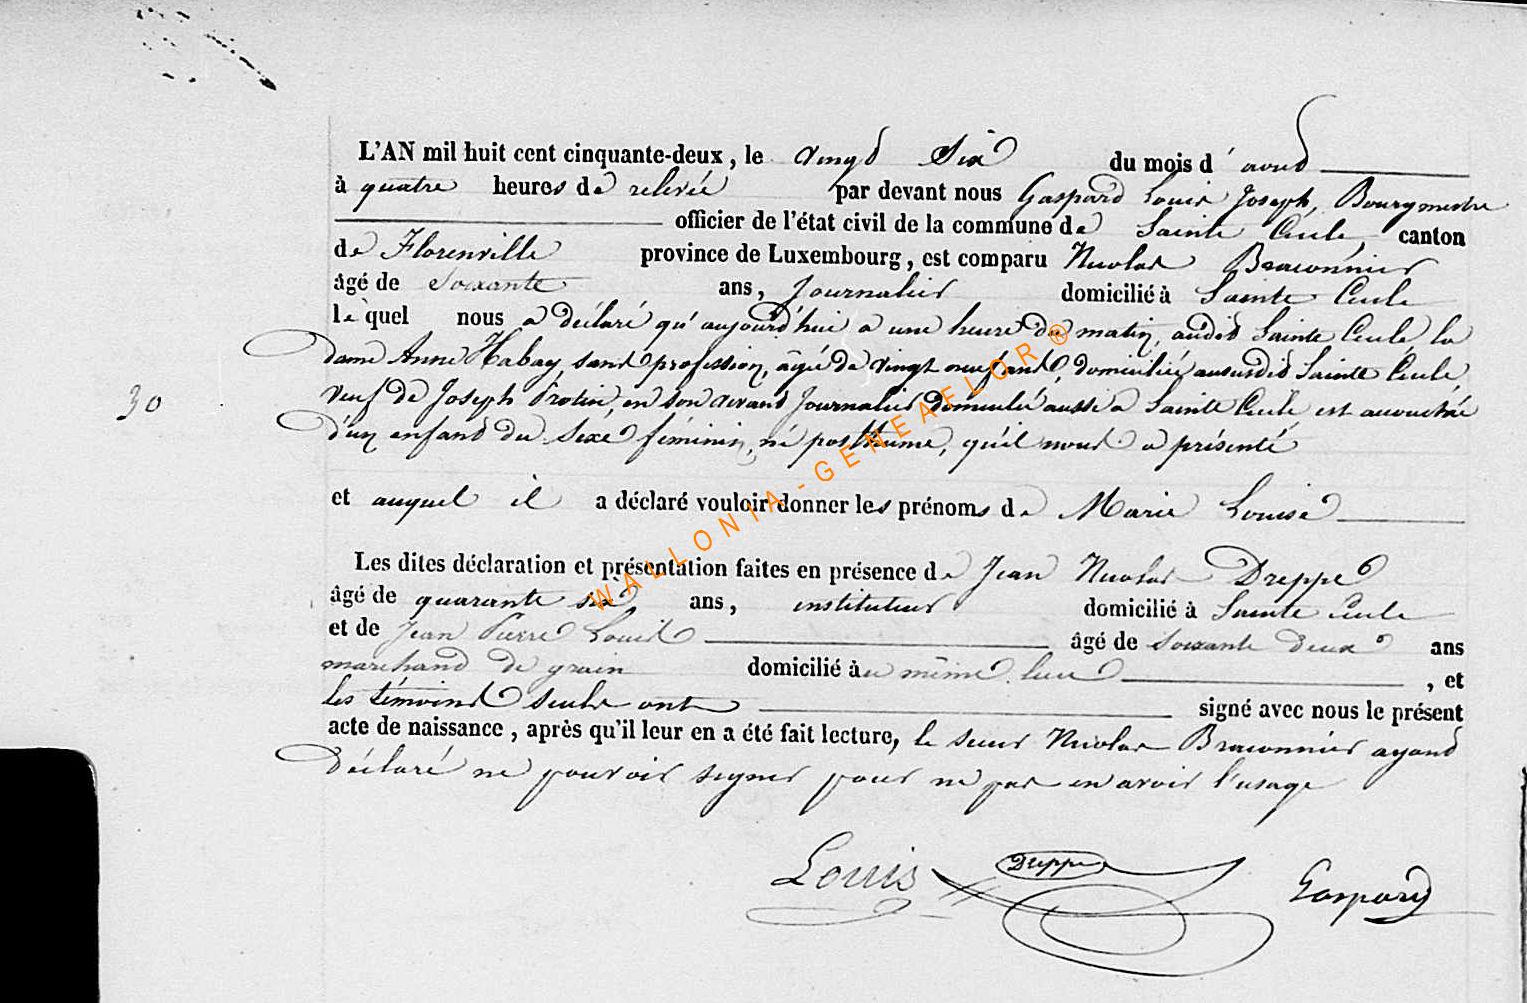 L'AN mil huit cent cinquante-deux, le vingt Six du mois d'aout
à quatre heures de relevée par devant nous Gaspard Louis Joseph, Bourgmestre
officier de l'état civil de la commune de Sainte Cécile, canton
de Florenville province de Luxembourg, est comparu Nicolas Braconnier
âgé de Soixante ans, Journalier domicilié à Sainte Cecile
lequel nous a déclaré qu'aujourd'hui a une heure du matin, audit Sainte Cecile la
dame Anne Habay, sans profession, âgée de vingt neuf ans, domiciliée aususdit Sainte Cécile,
veuf de Joseph Protin, en son vivant Journalier domicilié aussi a Sainte Cecile est accouchée
d'un enfant du Sexe féminin, né posthume, qu'il nous a présenté
30
et auquel il a déclaré vouloir donner les prénoms de Marie Louise
Les dites déclaration et présentation faites en présence de Jean Nicolas Dreppe
âgé de quarante six ans, instituteur domicilié à Sainte Cecile
et de Jean Pierre Louis âgé de soixante deux ans
marchand de grain domicilié au même lieu, et
les témoins seuls ont signé avec nous le présent
acte de naissance, après qu'il leur en a été fait lecture, le sieur Nicolas Braconnier ayant
déclaré ne pouvoir signer pour ne pas en avoir l'usage
Louis Dreppe Gaspard
WALLONIA-GENEAFLOR®